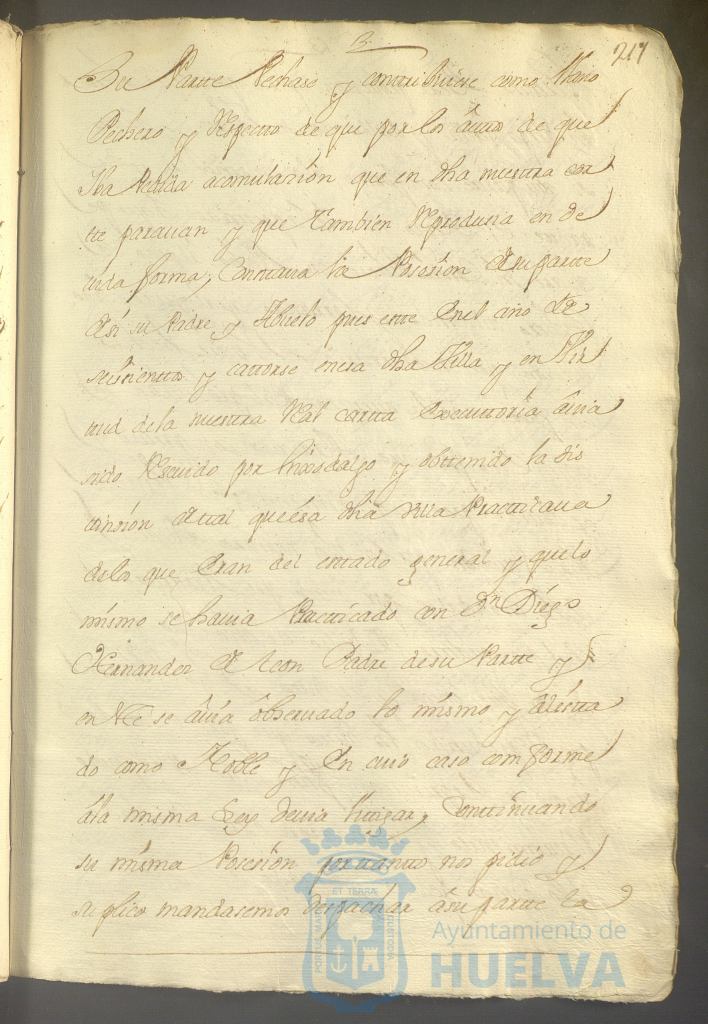 217
Su Partte Pechase y contribuiese como llano
Pechero y Respecto de que por los autos de que
Iba Pedida acomulazión que en dha nuestra cor
tte paravan y que tambien Reproducia en de
vida forma, Constava la Posesión de su partte
de si su Padre y Abuelo pues este en el año de
seiscientos y catorse en esa dha Villa y en Vir
tud de la nuestra Real cartta executtoria avia
sido Resevido por hixosdalgo y obttenido la dis
tinsión de tal que esa dha villa Practticava
de los que eran del estado general y que lo
mismo se havia Practticado con Dn Diego
Fernandez de leon Padre de su Partte y
en Este se avia observado lo mismo y alista
do como Noble y en cuio caso comforme
a la misma Ley devia litigar, Conttinuando
su misma Posesión por tanto nos pidio y
suplico mandasemos despachar a su partte la
Ayuntamiento de
HUELVA